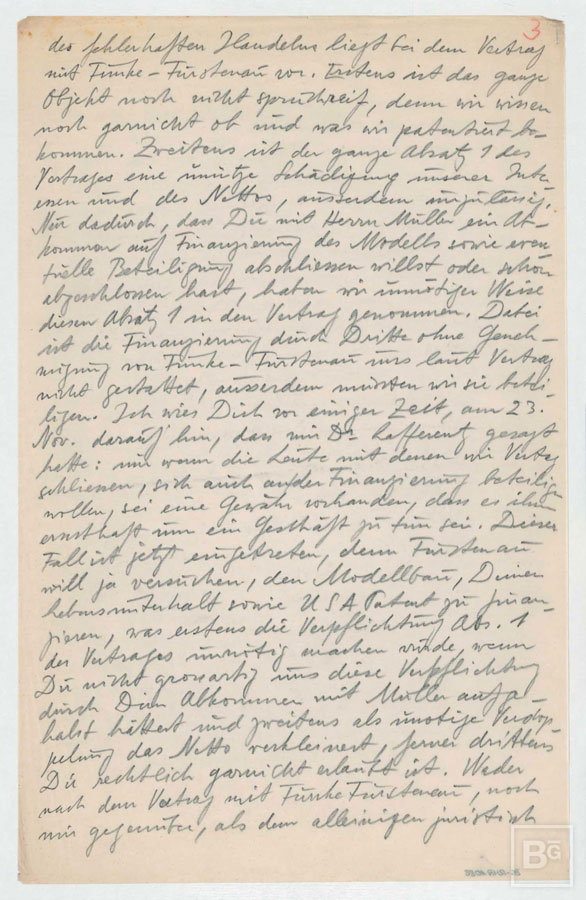 3
des fehlerhaften Handelns liegt bei dem Vertrag
mit Funke-Fürstenau vor. Erstens ist das ganze
Objekt noch nicht spruchreif, denn wir wissen
noch garnicht ob und was wir patentiert be-
kommen. Zweitens ist der ganze Absatz 1 des
Vertrages eine unnütze Schädigung unserer Inte-
essen und des Nettos, ausserdem unzulässig.
Nur dadurch, dass Du mit Herrn Müller ein Ab-
kommen auf Finanzierung des Modells sowie even-
tuelle Beteiligung abschliessen willst oder schon
abgeschlossen hast, haben wir unnötiger Weise
diesen Absatz 1 in den Vertrag genommen. Dabei
ist die Finanzierung durch Dritte ohne Geneh-
migung von Funke-Fürstenau uns laut Vertrag
nicht gestattet, ausserdem müssten wir sie betei-
ligen. Ich wies Dich vor einiger Zeit, am 23.
Nov. darauf hin, dass mir Dr. Lafferentz gesagt
hatte: nur wenn die Leute mit denen wir Vertrag
schliessen, sich auch an der Finanzierung beteiligen
wollen, sei eine Gewähr vorhanden, dass es ihnen
ernsthaft um ein Geschäft zu tun sei. Dieser
Fall ist jetzt eingetreten, denn Fürstenau
will ja versuchen, den Modellbau, Deinen
Lebensunterhalt sowie USA Patent zu finan-
zieren, was erstens die Verpflichtung Abs. 1
des Vertrages unnötig machen würde, wenn
Du nicht grossartig uns diese Verpflichtung
durch Dein Abkommen mit Müller aufge-
halst hättest und zweitens als unnötige Verdop-
pelung das Netto verkleinert, ferner drittens
Dir rechtlich garnicht erlaubt ist. Weder
nach dem Vertrag mit Funke Fürstenau, noch
mir gegenüber, als dem alleinigen juristisch
BG